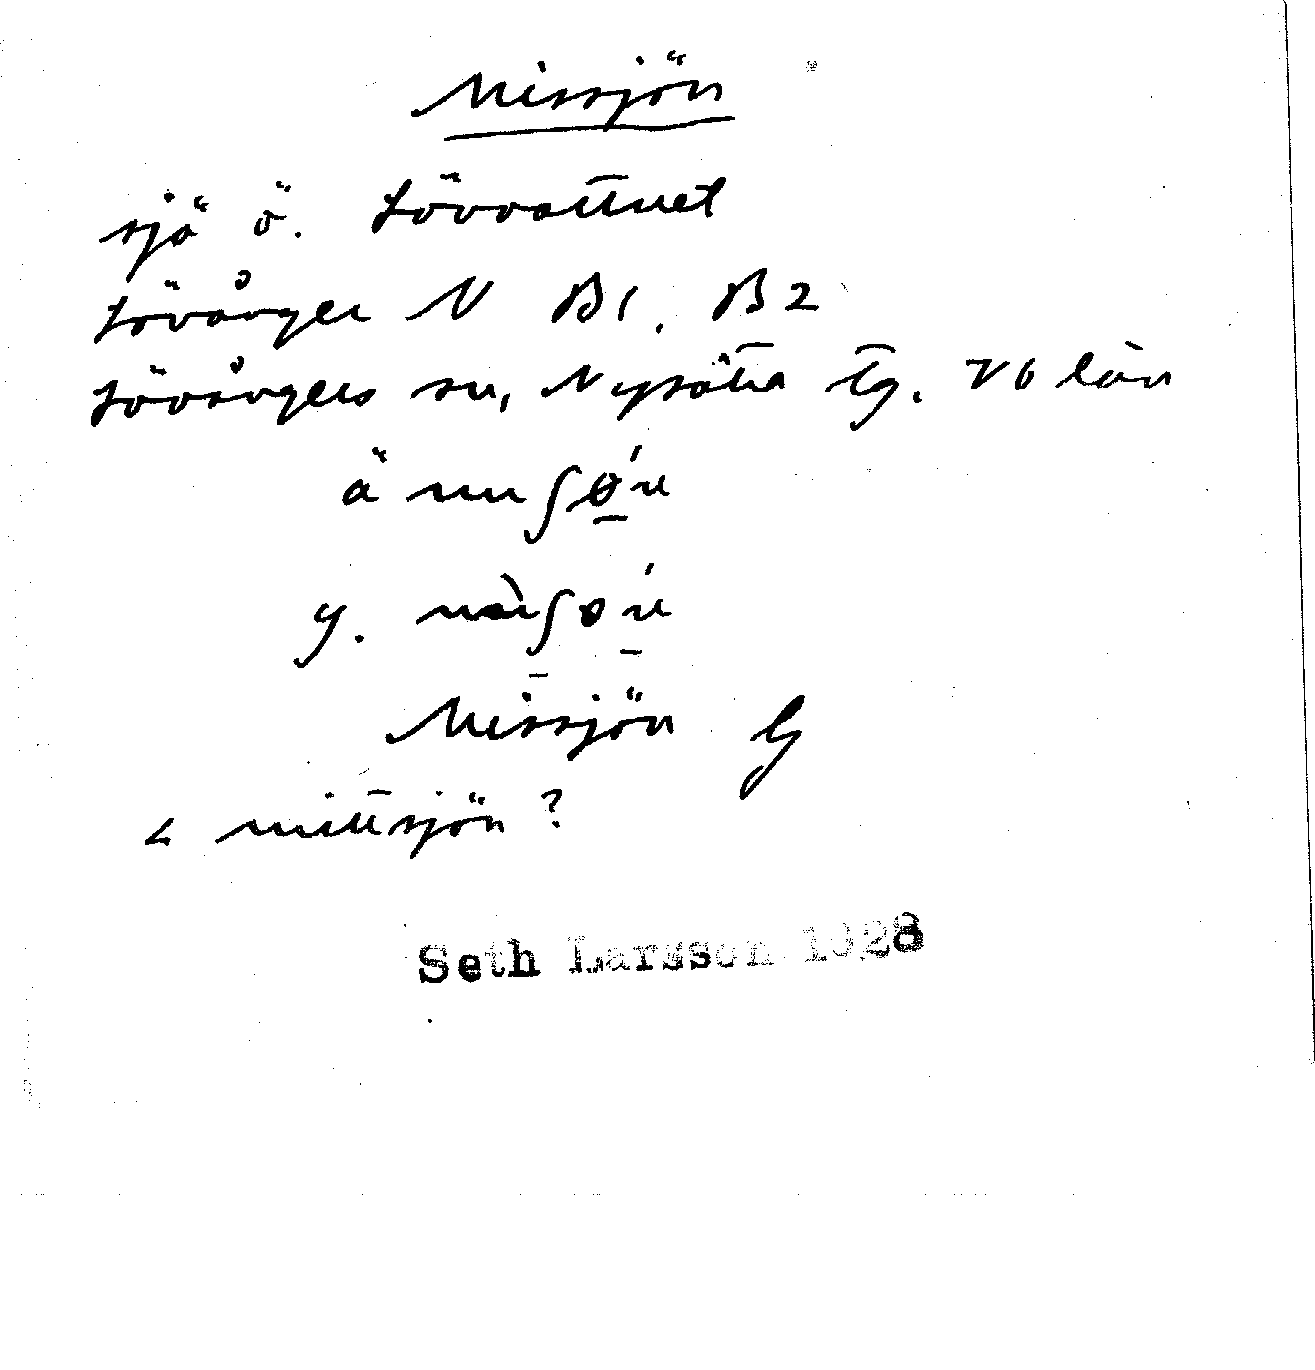 Missjön
sjö ö. Lövvattnet
Lövånger N B1, B2
Lövångers sn, Nysätra tg. Vb län
ä
y.
Missjön G
< mittsjön?
Seth Larsson 1928